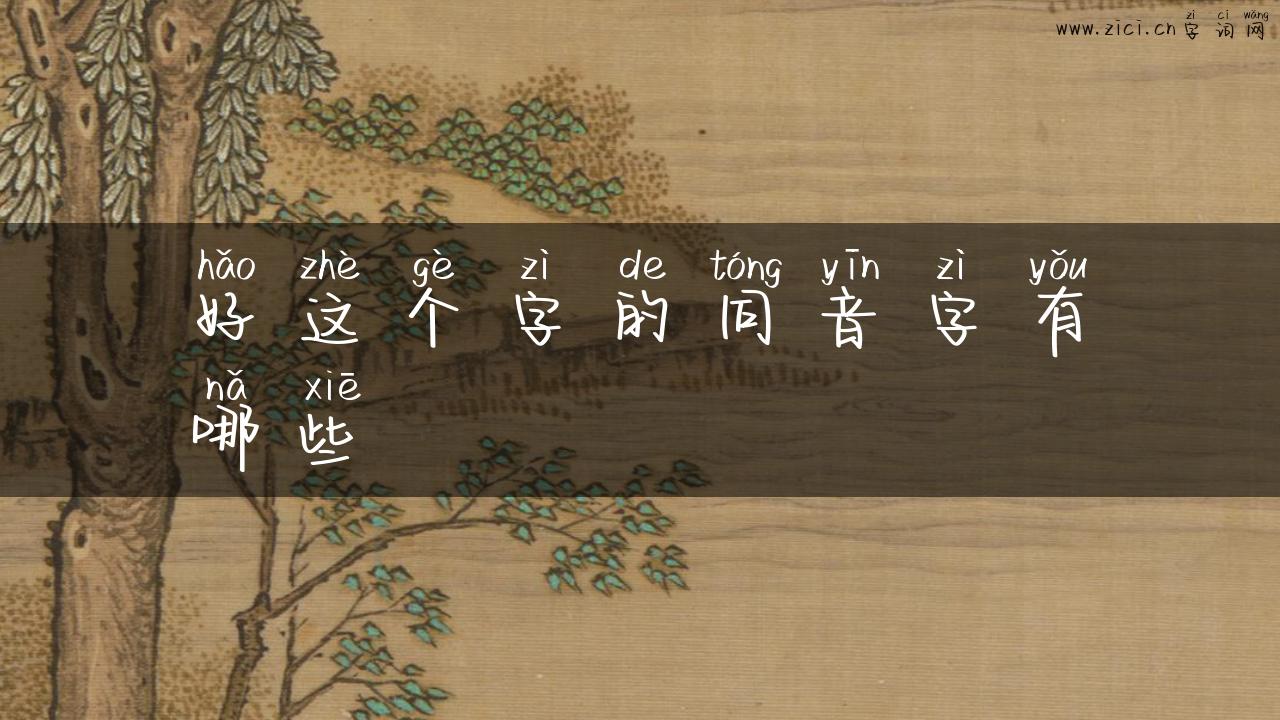 zì cí wǎng
www.zici.cn 字词网
hǎo zhè gè zì de tóng yīn zì yǒu
好这个字的同音字有
nǎ xiē
哪些